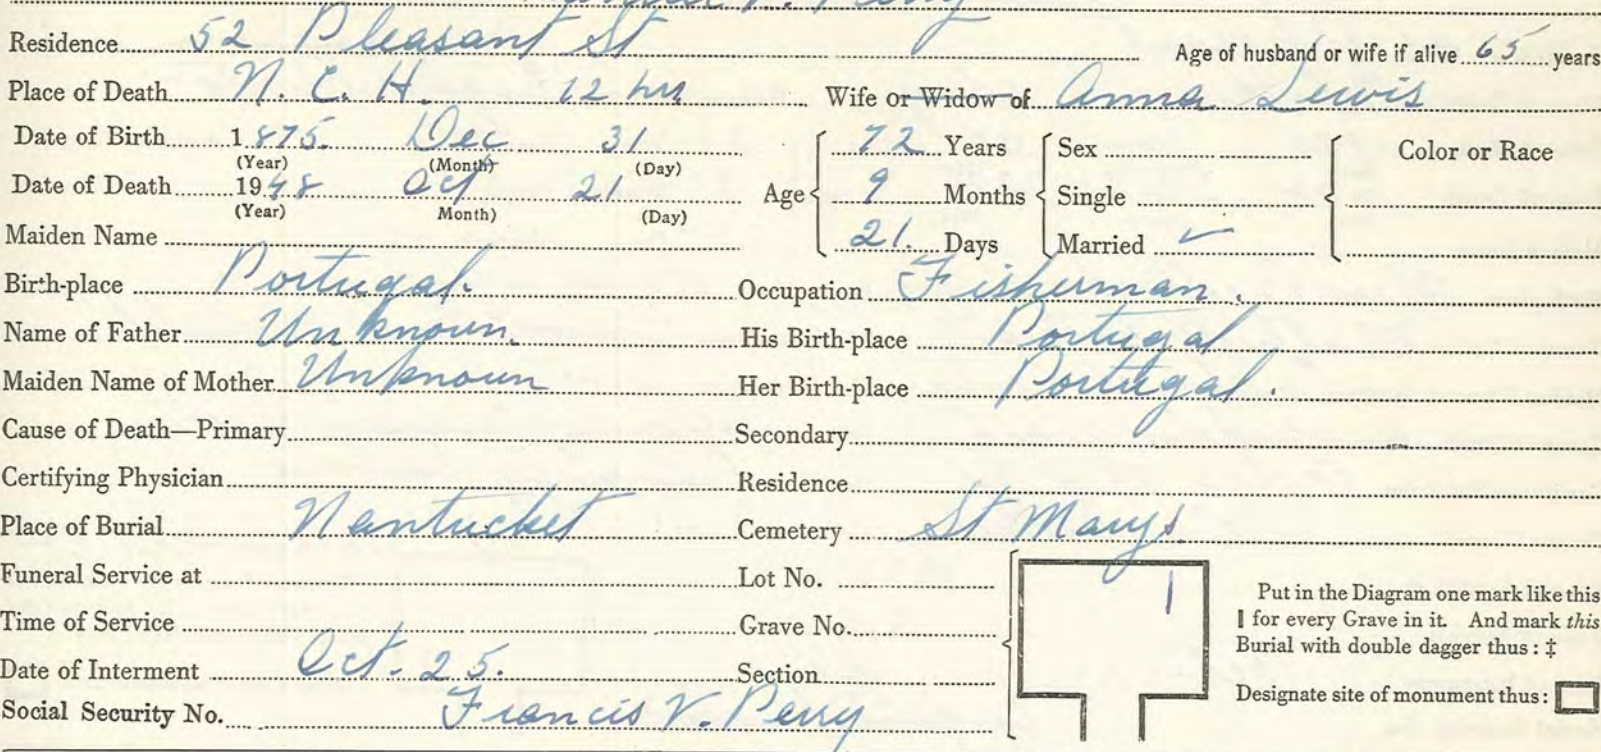 V. Perry
Residence 52 Pleasant St Age of husband or wife if alive 65 years
Place of Death N. C. H. 12 hrs Wife or Widow of Anna Lewis
Date of Birth 1875. Dec 31 72 Years Sex Color or Race
(Year) (Month) (Day)
Date of Death 1948 Oct 21 Age 9 Months Single
(Year) Month) (Day)
Maiden Name 21. Days Married ✓
Birth-place Portugal. Occupation Fisherman.
Name of Father Unknown. His Birth-place Portugal
Maiden Name of Mother Unknown Her Birth-place Portugal.
Cause of Death—Primary Secondary
Certifying Physician Residence
Place of Burial Nantucket Cemetery St Marys.
Funeral Service at Lot No.
Time of Service Grave No.
Date of Interment Oct. 25. Section
Social Security No. Francis V. Perry
Put in the Diagram one mark like this
| for every Grave in it. And mark this
Burial with double dagger thus: ‡
Designate site of monument thus: